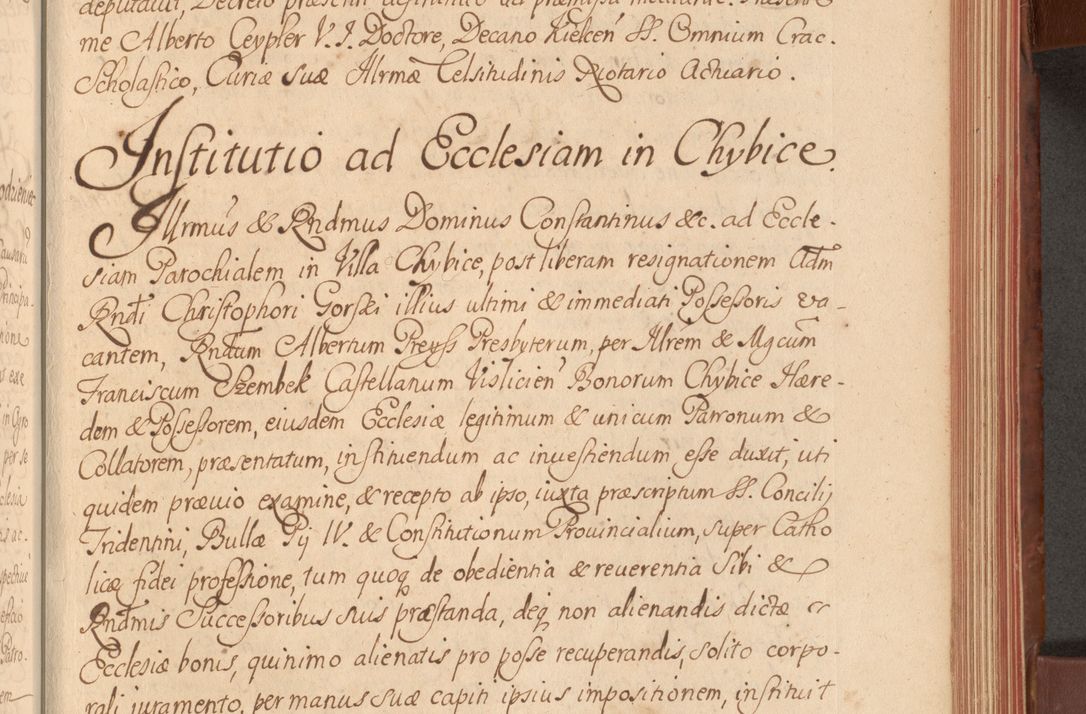 deputatus, Decreto præsenti
me Alberto Ceypler V. I. Doctore, Decano Kielcen̄ SS. Omnium Crac.
Scholastico, Curiæ suæ Illrmæ Celsitudinis Notario Actuario.
Institutio ad Ecclesiam in Chybice.
Illrmus & Rndmus Dominus Constantinus &c. ad Eccle-
siam Parochialem in Villa Chybice, post liberam resignationem Adm
Rndi Christophori Gorski illius ultimi & immediati Possessoris va-
cantem, Rndum Albertum Preyss Presbyterum, per Illrem & Mgcum
Franciscum Szembek Castellanum Vislicien̄ Bonorum Chybice Hære-
dem & Possessorem, eiusdem Ecclesiæ legitimum & unicum Patronum &
Collatorem, præsentatum, instituendum ac inuestiendum esse duxit, uti
quidem præuio examine, & recepto ab ipso, iuxta præscriptum SS. Concilij
Tridentini, Bullæ Pij IV. & Constitutionum Prouincialium, super Catho
licæ fidei professione, tum quoq de obedientia & reuerentia Sibi &
Rndmis Successoribus suis præstanda, deq non alienandis dictæ
Ecclesiæ bonis, quinimo alienatis pro posse recuperandis, solito corpo-
rali iuramento, per manus suæ capiti ipsius impositionem, instituit